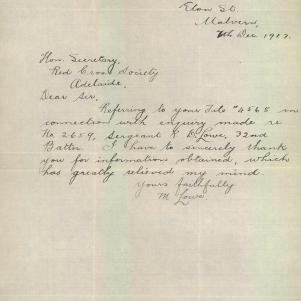 Elon St.
Malvern,
7th Dec 1917.
Hon. Secretary,
Red Cross Society
Adelaide.
Dear Sir,
Referring to your File #4568 in
connection with enquiry made re
No 2659, Sergeant R D Lowe, 32nd
Battn. I have to sincerely thank
you for information obtained, which
has greatly relieved my mind.
Yours faithfully
M Lowe